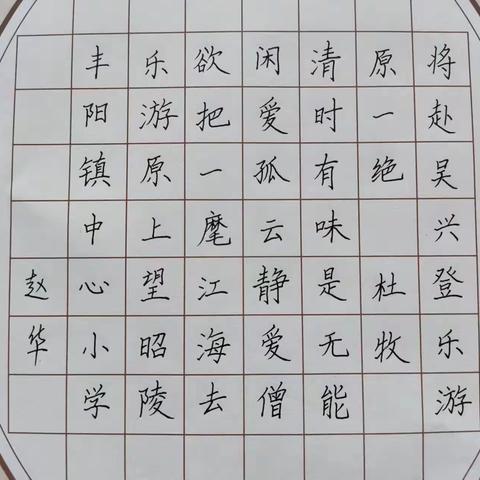 将赴吴兴登乐游
原一绝 杜牧
清时有味是无能
闲爱孤云静爱僧
欲把一麾江海去
乐游原上望昭陵
丰阳镇中心小学
赵华